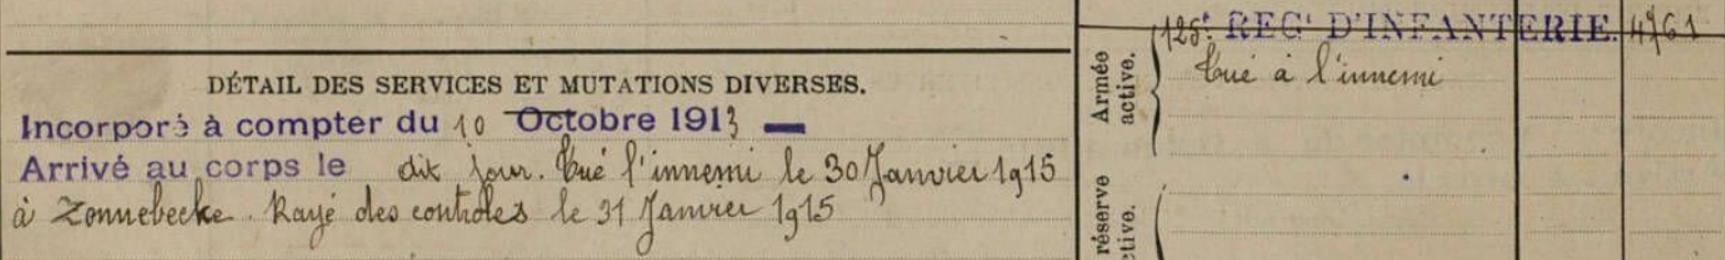 DÉTAIL DES SERVICES ET MUTATIONS DIVERSES.
Incorporé à compter du 10 Octobre 1913
Arrivé au corps le dit jour. Tué l'innemi le 30 Janvier 1915
à Zonnebecke. Rayé des controles le 31 Janvier 1915
125e REGt D'INFANTERIE. 4761
Tué à l'innemi
Armée
active.
réserve
ctive.